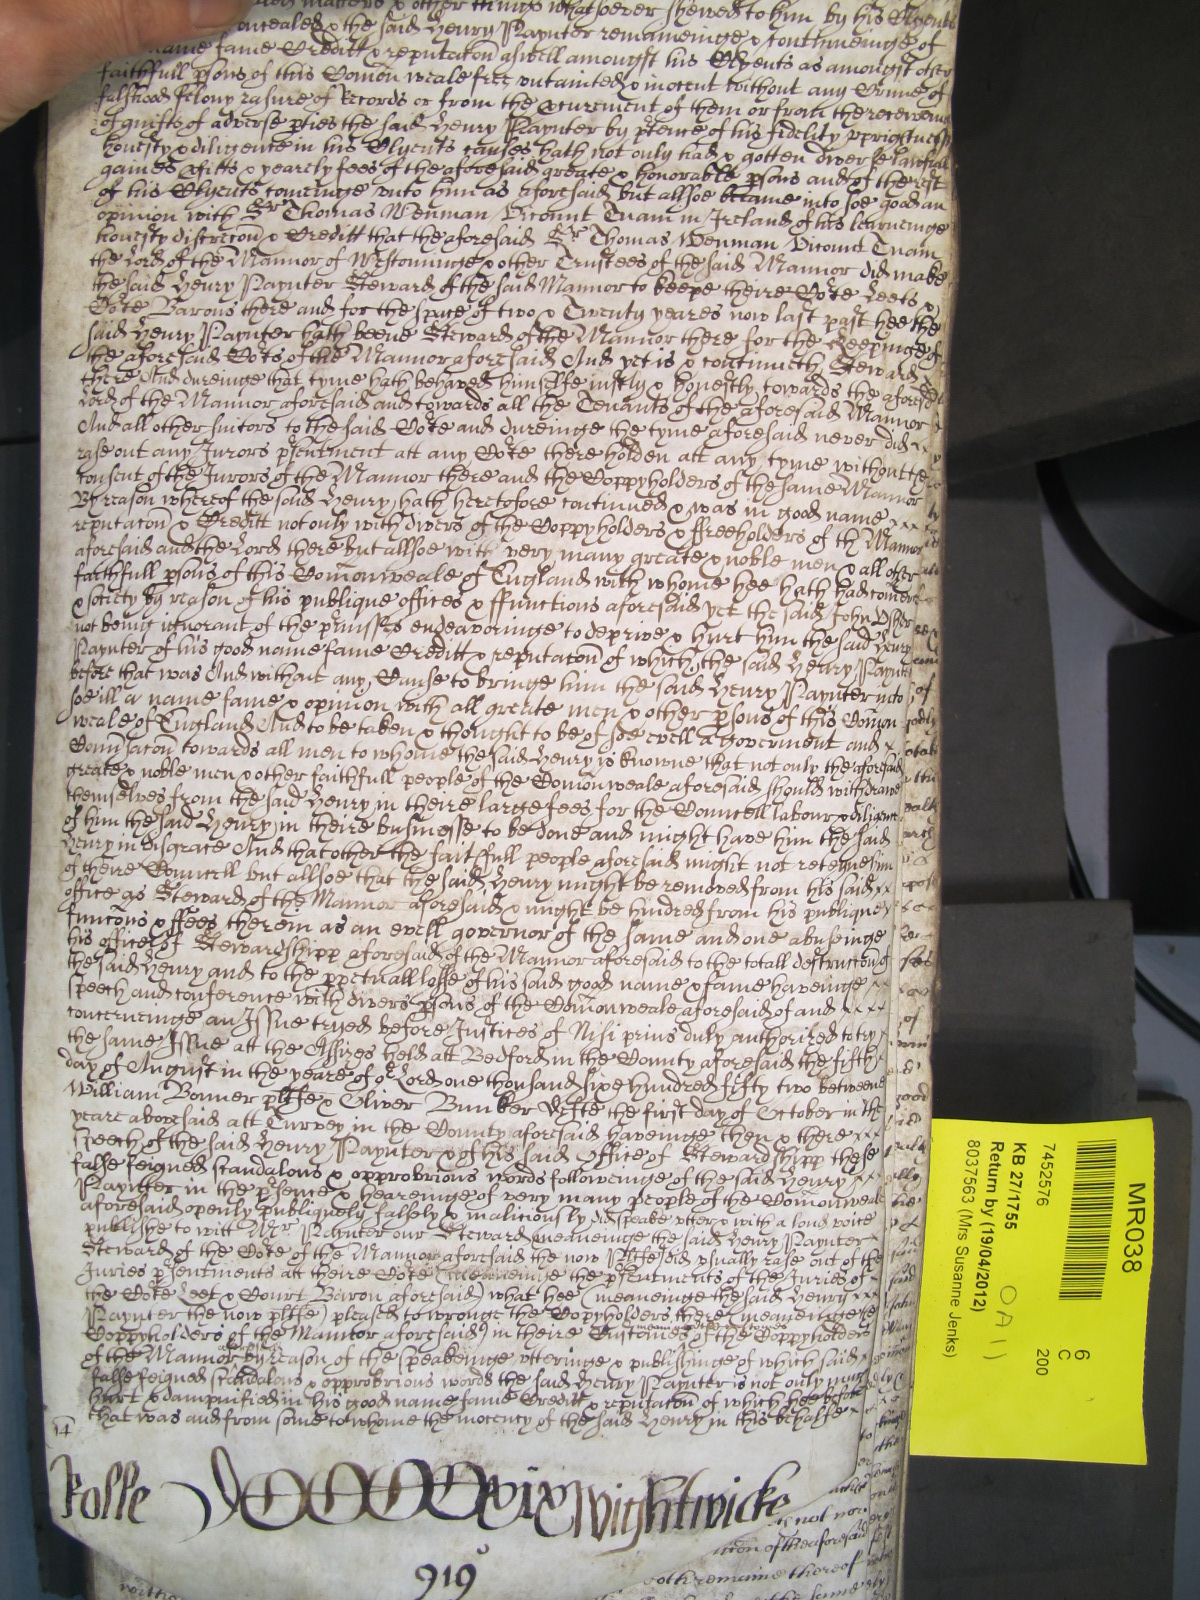 matters & other things whatsoever shewed to him by his Clyents
concealed & the said Henry Paynter remaineinge & continueinge of
name fame Creditt & reputacon aswell amongst his Clyents as amongst other
faithfull psons of this Comon weale free untainted & inocent without any Crime of
falshood felony rasure of Records or from the pcurement of them or from the receiveinge
of guifts of adverse pties the said Henry Paynter by ptence of his fidelity uprightness
honesty & diligence in his Clyents causes hath not only had & gotten diverse lawfull
gaines guifts & yearely fees of the aforesaid greate & honorable psons and of the rest
of his Clyents comeinge unto him as aforesaid but allsoe became into soe good an
opinion with Sr Thomas Wenman Vicount Tuam in Ireland of his learneinge
honesty discrecon & Creditt that the aforesaid Sr Thomas Wenman Vicount Tuam
the Lord of the Mannor of Westoninge & other Trustees of the said Mannor did make
the said Henry Paynter Steward of the said Mannor to keepe theire Cote Leets &
Cote Barons there and for the space of two & Twenty yeares now last past hee the
said Henry Paynter hath beene Steward of the Mannor there for the keepeinge of
the aforesaid Cots of the Mannor aforesaid And yet is & continueth Steward
there And dureinge that tyme hath behaved himselfe justly & honestly towards the aforesd
Lord of the Mannor aforesaid and towards all the Tenants of the aforesaid Mannor
And all other suitors to the said Cote and dureinge the tyme aforesaid never did
rase out any Jurors psentment att any Cote there holden att any tyme without the
consent of the Jurors of the Mannor there and the Coppyholders of the same Mannor
By reason whereof the said Henry hath heretofore continued & was in good name
reputacon & Creditt not only with divers of the Coppyholders & ffreeholders of th Mannor
aforesaid and the Lord there but allsoe with very many greate & noble men & all other
faithfull psons of this Comonweale of England with whome hee hath had comerce
& society by reason of his publique offices & ffunctions aforesaid yet the said John
not being ignorant of the pmisses endeavoringe to deprive & hurt him the said Henry
Paynter of his good name fame Creditt & reputacon of which the said Henry Paynter
before that was And without any Cause to bringe him the said Henry Paynter into
soe ill a name fame & opinion with all greate men & other psons of this Comon
weale of England And to be taken & thought to be of soe evell a goverment and
Convsacon towards all men to whome the said Henry is knowne that not only the aforesaid
greate & noble men & other faithfull people of the Comonweale aforesaid should withdrawe
themselves from the said Henry in theire large fees for the Councell labour & diligence
of him the said Henry in theire businesse to be done and might have him the said
Henry in disgrace And that other the faithfull people aforesaid might not reteyne him
of theire Councell but allsoe that the said Henry might be removed from his said
office as Steward of the Mannor aforesaid & might be hindred from his publique
funcons & ffees therein as an evell governor of the same and one abuseinge
his office of Stewardshipp aforesaid of the Mannor aforesaid to the totall destruccon of
the said Henry and to the ppetuall losse of his said good name & fame haveinge
speech and conference with divers psons of the Comonweale aforesaid of and
concerneinge an Issue tryed before Justices of Nisi prius duly authorized to try
the same Issue att the Assizes held att Bedford in the County aforesaid the fifth
day of August in the yeare of or Lord one thousand sixe hundred fifty two betweene
William Bonner pltffe & Oliver Bunker defte the first day of October in the
yeare abovesaid att Turvey in the County aforesaid haveinge then & there
speech of the said Henry Paynter & of his said Office of Stewardshipp these
false feigned scandalous & opprobrious words followeinge of the said Henry
Paynter in the psence & heareinge of very many people of the Comonweale
aforesaid openly publiquely falsely & maliciously did speake utter & with a loud voice
publishe to witt Mr Paynter our Steward (meaneinge the said Henry Paynter
Steward of the Cote of the Mannor aforesaid the now Pltffe) did usually rase out of the
Juries psentments att theire Cote (meaneinge the psentments of the Juries of
the Cote Leet & Court Baron aforesaid) what hee (meaneinge the said Henry
Paynter the now pltffe) pleased to wronge the Copyholders there (meaneinge the
Coppyholders of the Mannor aforesaid) in theire Customes of the Coppyholders
of the Mannor by reason of the speakeinge utteringe & publishinge of which said
false feigned scandalous & opprobrious words the said Henry Paynter is not only much
hurt & dampnified in his good name fame Creditt & reputacon of which hee before
that was and from some to whome the inocency of the said Henry in this behalfe
Rolle DCCCCxix Wightwicke
919
is not
of the aforesaid
remaine thereof
the same
MR038
7452576
6
C
200
KB 27/1755
OA11
Return by (19/04/2012)
8037563 (Mrs Susanne Jenks)